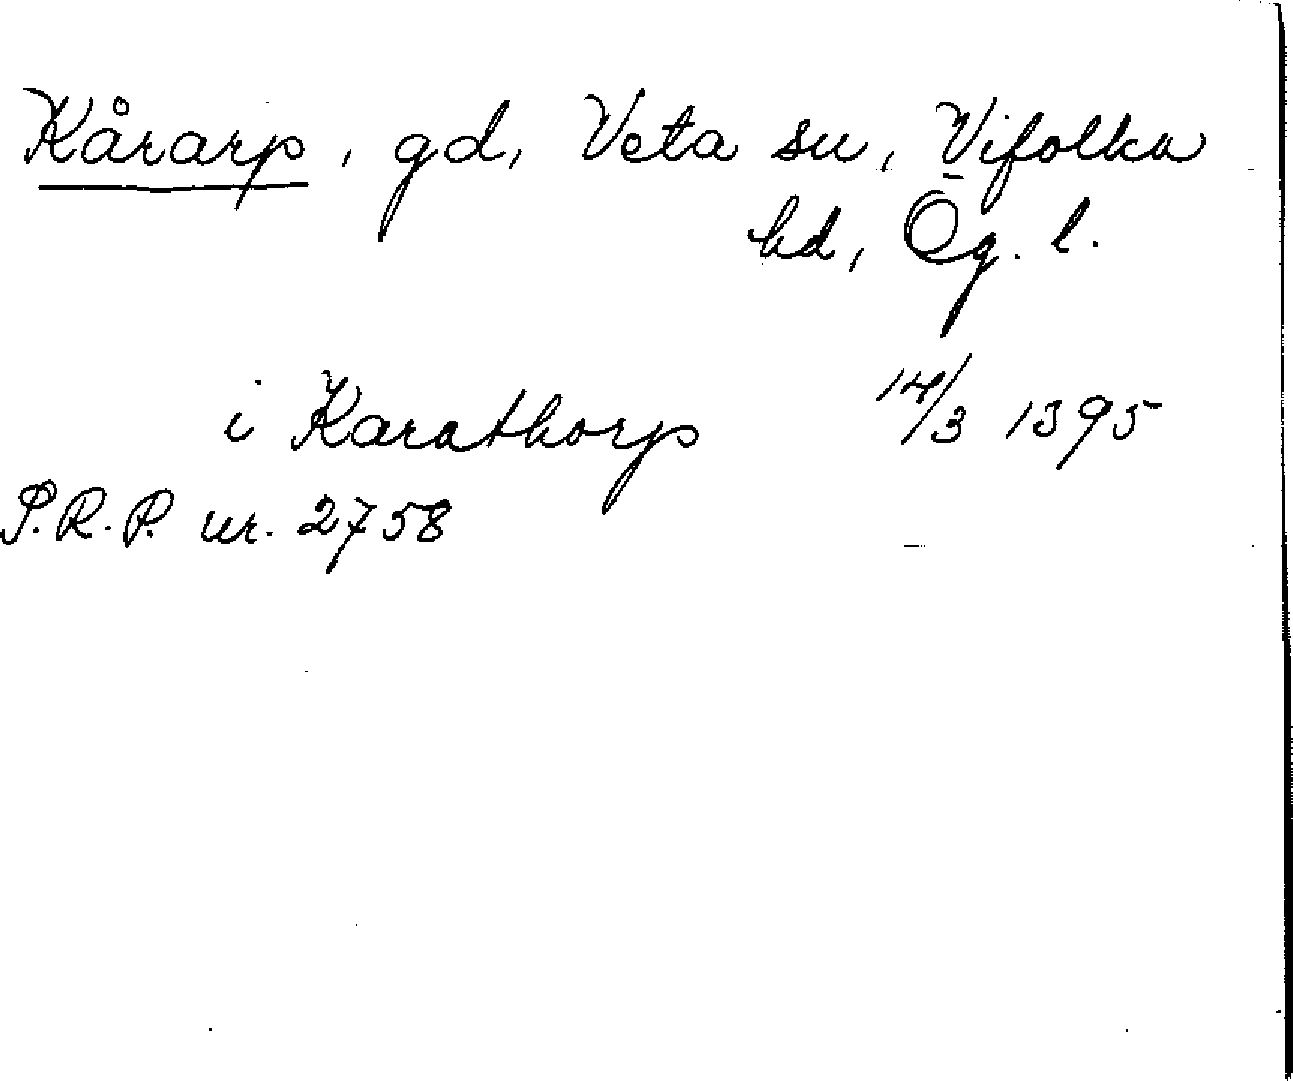 Kårarp, gd, Veta sn, Vifolka
hd, Ög. l.
i Karathorp 14/3 1395
P.R.P. nr. 2758